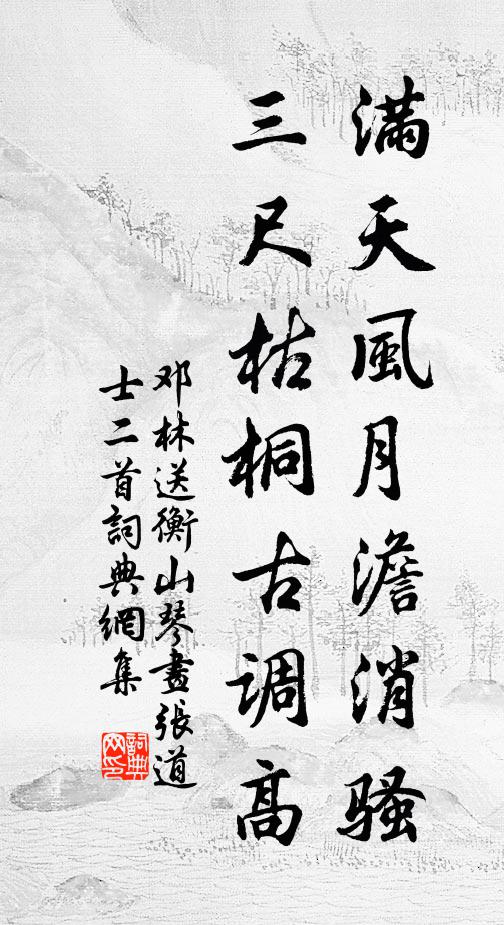 滿天風月澹消骚
三尺枯桐古调高
邓林送衡山琴畫張道
士二首詞典網集
詞典網印